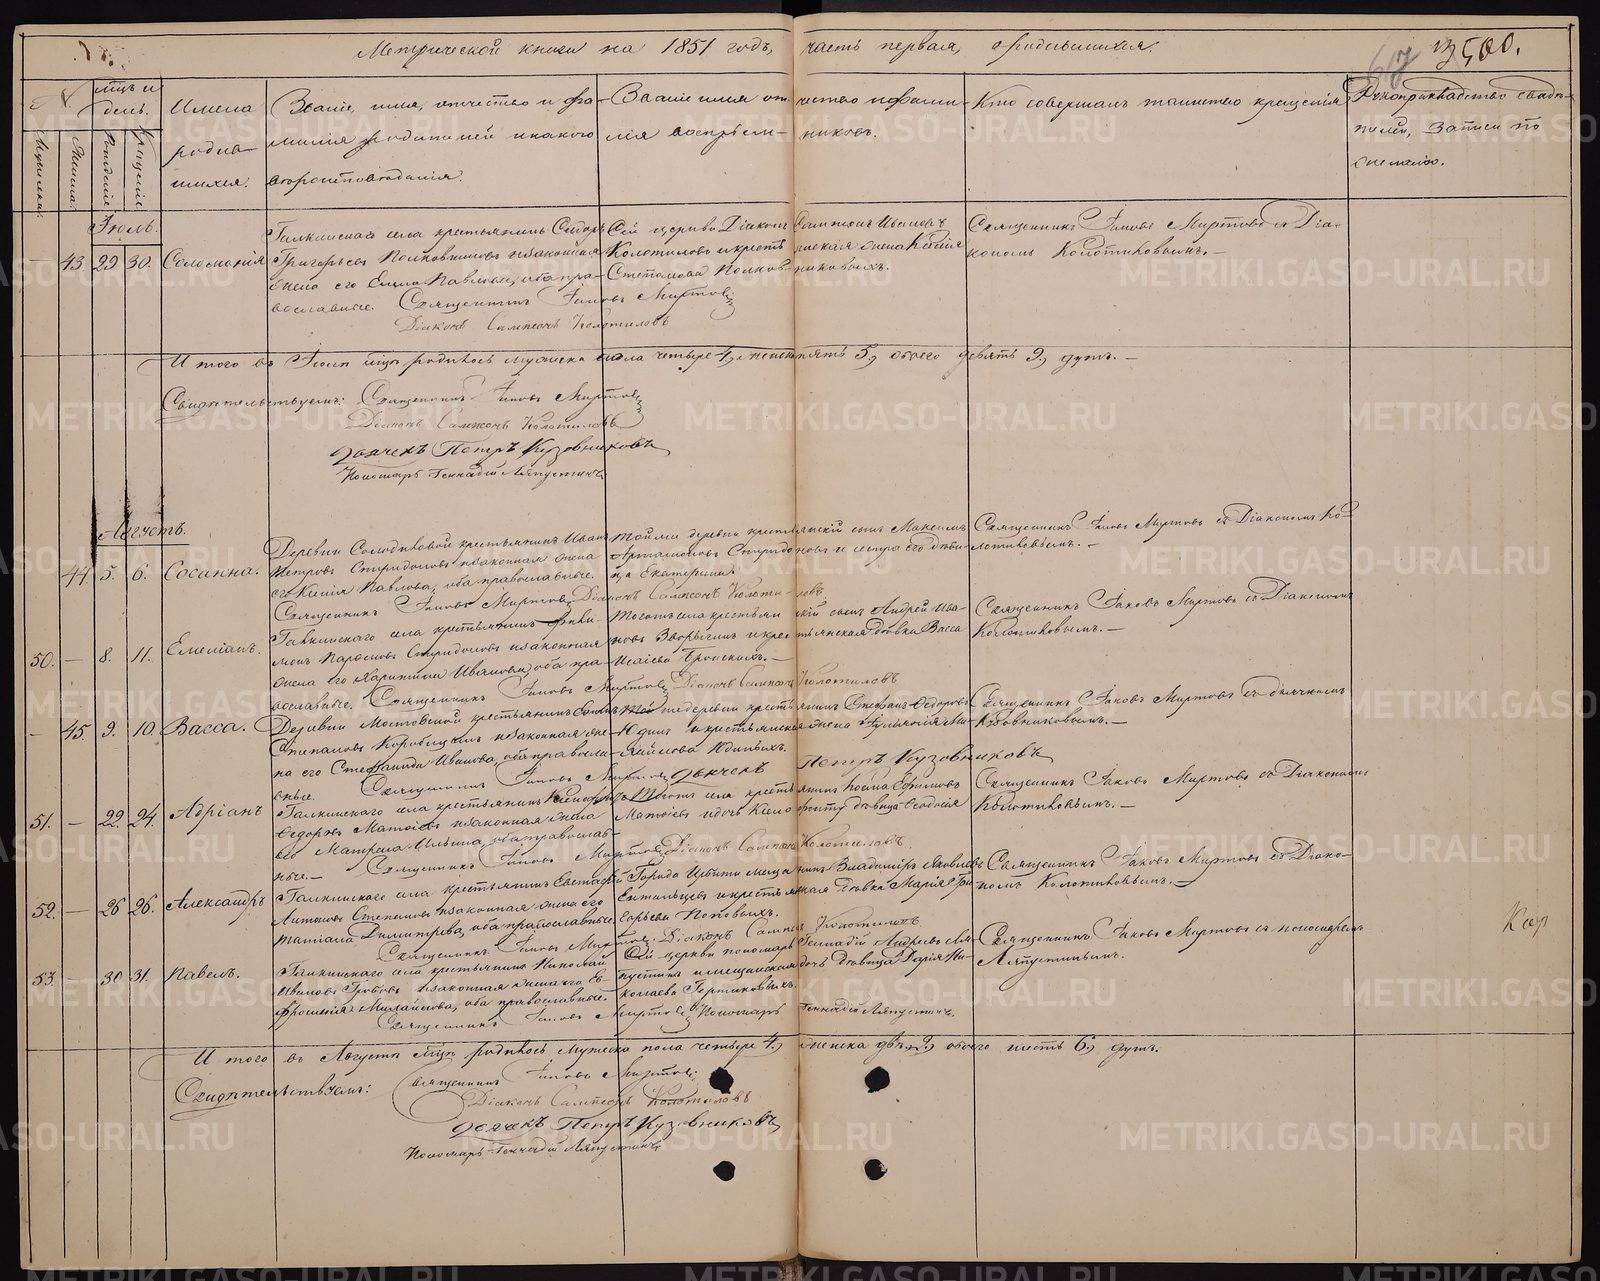 Метрической книги на 1851 годъ, часть первая, о родившихся.
500.
Мцъ и день.
Имена родив-шихся.
Званіе, имя, отчество и фа-милія родителей и какого вѣроисповѣданія.
Званіе имя от-чество и фами-лія воспріем-никовъ.
Кто совершалъ таинство крещенія
Рукоприкладство свидѣ-телей, записи по
Рожденіе
Крещеніе
Іюль.
43. 29 30. Соломонія
Галкинскаго села крестьянинъ Сидоръ
Григорьевъ Полковниковъ и законная
жена его Елена Павлова, оба пра-
вославные. Священникъ Іаковъ Миртовъ
Діаконъ Сампсонъ Колотиловъ
Сей церкви Діаконъ Сампсонъ Ивановъ
Колотиловъ и крестьянская жена Ксенія
Степанова Полков-никовыхъ.
Священникъ Іаковъ Миртовъ съ Діа-
кономъ Колотиловымъ. —
И того въ Іюлѣ мцѣ родилось мужеска пола четыре 4, женска пять 5, обоего девять 9, душъ. —
Свидѣтельствуемъ: Священникъ Іаковъ Миртовъ
Діаконъ Сампсонъ Колотиловъ
Дьячекъ Петръ Кузовниковъ
Пономарь Геннадій Ляпустинъ
Августъ.
44 5. 6. Сосанна.
Деревни Солодиловой крестьянинъ Иванъ
Петровъ Спиридоновъ и законная жена
его Ксенія Павлова, оба православные.
Священникъ Іаковъ Миртовъ Діаконъ Сампсонъ Колотиловъ
Той же деревни крестьянскій сынъ Максимъ
Артамоновъ Спиридоновъ и сестра его дѣви-
ца Екатерина.
Священникъ Іаковъ Миртовъ съ Діакономъ Ко-
лотиловымъ. —
50. — 8. 11. Емеліанъ.
Галкинскаго села крестьянинъ
Спиридоновъ и законная
жена его Ивановна, оба пра-
вославные. Священникъ Іаковъ Миртовъ Діаконъ Сампсонъ Колотиловъ
Тогожъ села крестьянскій сынъ Андрей Ива-
новъ Зворыгинъ и крестьянская дѣвка Васса
Исаіева
Священникъ Іаковъ Миртовъ съ Діакономъ
Колотиловымъ. —
— 45 9. 10. Васса.
Деревни Мостовской крестьянинъ
Степановъ Коробицынъ и законная же-
на его Стефанида Иванова, оба православ-
ные. Священникъ Іаковъ Миртовъ Дьячекъ Петръ Кузовниковъ
Той же деревни крестьянинъ Стефанъ Ѳедоровъ
и крестьянская жена Іуліанія Ми-
хайлова
Священникъ Іаковъ Миртовъ съ дьячкомъ
Кузовниковымъ. —
51. — 22. 24. Адріанъ
Галкинскаго села крестьянинъ Ксенофонтъ
Ѳедоровъ Матоіевъ и законная жена
его Матрена Ильина, оба православ-
ные. — Священникъ Іаковъ Миртовъ Діаконъ Сампсонъ Колотиловъ.
Тогожъ села крестьянинъ Косма Ефимовъ
Матоіевъ и дочь Ксенофонту дѣвица Ѳеодосія
Священникъ Іаковъ Миртовъ съ Діакономъ
Колотиловымъ. —
52. — 26 26. Александръ
Галкинскаго села крестьянинъ Евстафій
Антоновъ Степановъ и законная жена его
Татіана Димитрева, оба православные.
Священникъ Іаковъ Миртовъ. Діаконъ Сампсонъ Колотиловъ
Города Ирбити мещанинъ Владиміръ Яковлевъ
и крестьянская дѣвка Марія Гри-
горьева Поповыхъ.
Священникъ Іаковъ Миртовъ съ Діако-
номъ Колотиловымъ. —
53. — 30 31. Павелъ.
Галкинскаго села крестьянинъ Николай
Ивановъ и законная жена его Ев-
фросинія Михайлова, оба православные.
Священникъ Іаковъ Миртовъ Пономарь Геннадій Ляпустинъ.
Сей церкви пономарь Геннадій Андреевъ Ля-
пустинъ и мещанская дочь дѣвица Дарія Ни-
колаева
Священникъ Іаковъ Миртовъ съ пономаремъ
Ляпустинымъ.
Кор
И того въ Августѣ мцѣ родилось мужеска пола четыре 4, женска двѣ 2, обоего шесть 6, душъ.
Свидѣтельствуемъ: Священникъ Іаковъ Миртовъ
Діаконъ Сампсонъ Колотиловъ
Дьячекъ Петръ Кузовниковъ
Пономарь Геннадій Ляпустинъ
METRIKI.GASO-URAL.RU